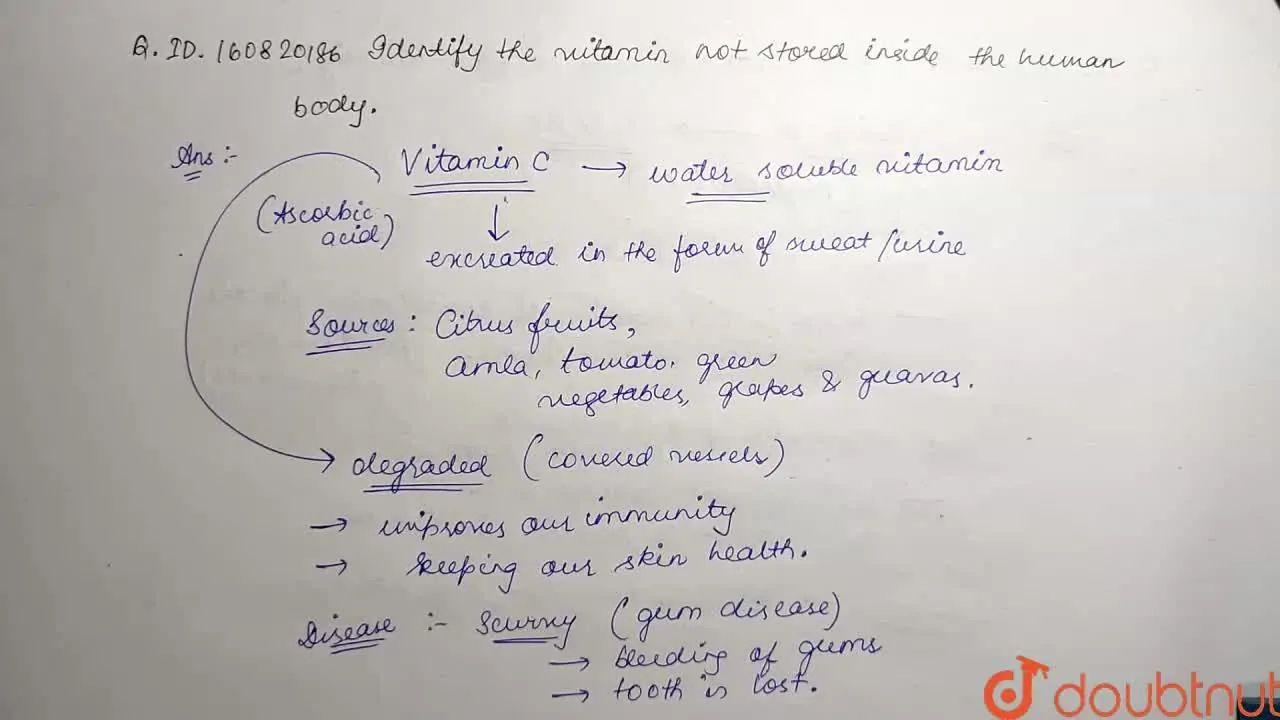 Q. ID. 160820186 Identify the vitamin not stored inside the human
body.
Ans :-
Vitamin C → water soluble vitamin
(Ascorbic
acid)
↓
excreated in the form of sweat/urine
Sources : Citrus fruits,
Amla, tomato. green
vegetables, grapes & guavas.
→ degraded (covered vessels)
→ improves our immunity
→ keeping our skin health.
Disease :- Scurvy (gum disease)
→ bleeding of gums
→ tooth is lost.
doubtnut